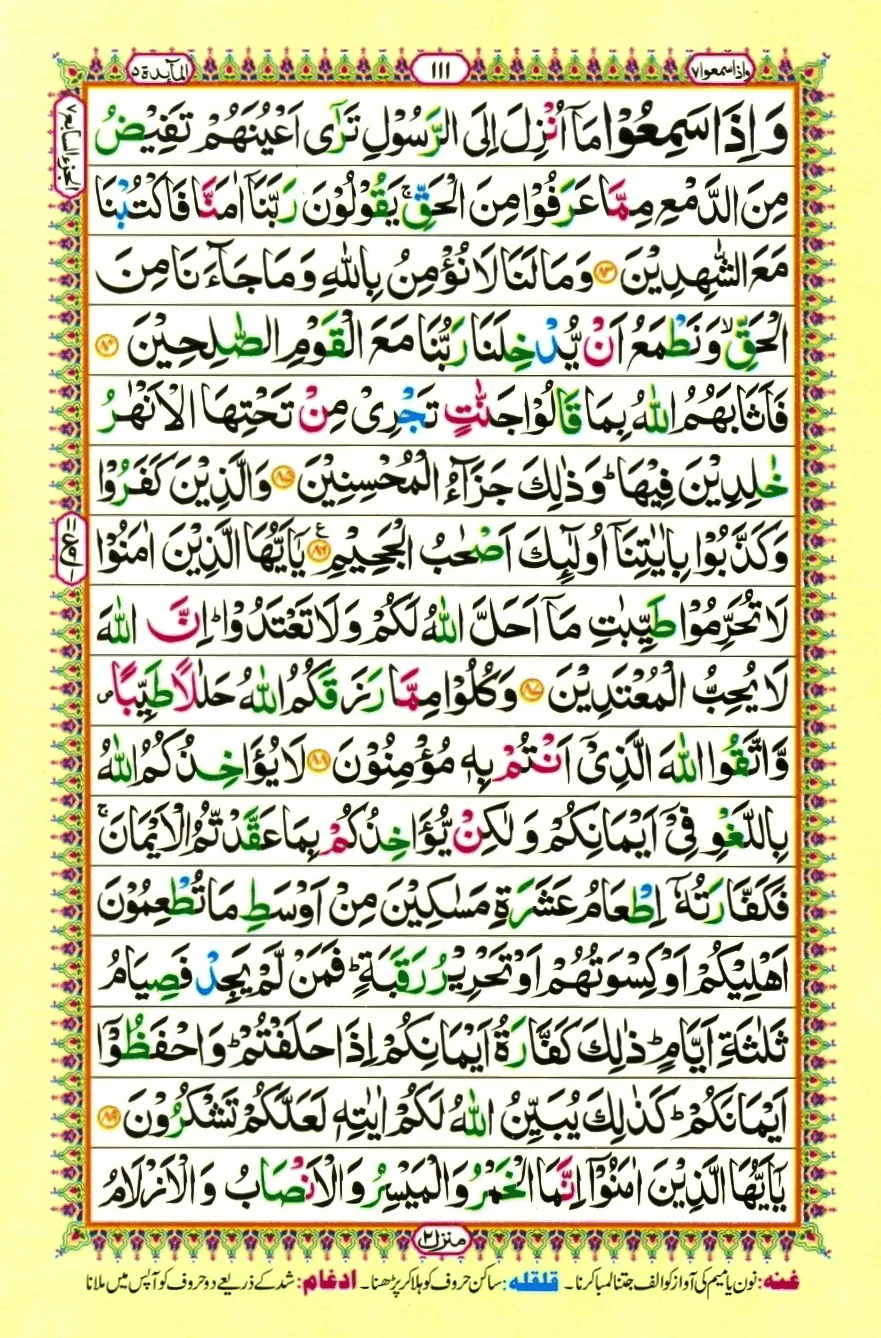 واذاسمعوا۷
۱۱۱
المآىِٕدة۵
الجزء السابع۷
وَ اِذَا سَمِعُوْا مَاۤ اُنْزِلَ اِلَى الرَّسُوْلِ تَرٰۤى اَعْیُنَهُمْ تَفِیْضُ
مِنَ الدَّمْعِ مِمَّا عَرَفُوْا مِنَ الْحَقِّ ۚ یَقُوْلُوْنَ رَبَّنَاۤ اٰمَنَّا فَاكْتُبْنَا
مَعَ الشّٰهِدِیْنَ ۸۳ وَ مَا لَنَا لَا نُؤْمِنُ بِاللّٰهِ وَ مَا جَآءَنَا مِنَ
الْحَقِّ ۙ وَ نَطْمَعُ اَنْ یُّدْخِلَنَا رَبُّنَا مَعَ الْقَوْمِ الصّٰلِحِیْنَ ۸۴
فَاَثَابَهُمُ اللّٰهُ بِمَا قَالُوْا جَنّٰتٍ تَجْرِیْ مِنْ تَحْتِهَا الْاَنْهٰرُ
خٰلِدِیْنَ فِیْهَا ؕ وَ ذٰلِكَ جَزَآءُ الْمُحْسِنِیْنَ ۸۵ وَ الَّذِیْنَ كَفَرُوْا
وَ كَذَّبُوْا بِاٰیٰتِنَاۤ اُولٰٓىِٕكَ اَصْحٰبُ الْجَحِیْمِ ۸۶ ع یٰۤاَیُّهَا الَّذِیْنَ اٰمَنُوْا
لَا تُحَرِّمُوْا طَیِّبٰتِ مَاۤ اَحَلَّ اللّٰهُ لَكُمْ وَ لَا تَعْتَدُوْا ؕ اِنَّ اللّٰهَ
لَا یُحِبُّ الْمُعْتَدِیْنَ ۸۷ وَ كُلُوْا مِمَّا رَزَقَكُمُ اللّٰهُ حَلٰلًا طَیِّبًا ۪
وَّ اتَّقُوا اللّٰهَ الَّذِیْۤ اَنْتُمْ بِهٖ مُؤْمِنُوْنَ ۸۸ لَا یُؤَاخِذُكُمُ اللّٰهُ
بِاللَّغْوِ فِیْۤ اَیْمَانِكُمْ وَ لٰكِنْ یُّؤَاخِذُكُمْ بِمَا عَقَّدْتُّمُ الْاَیْمَانَ ۚ
فَكَفَّارَتُهٗۤ اِطْعَامُ عَشَرَةِ مَسٰكِیْنَ مِنْ اَوْسَطِ مَا تُطْعِمُوْنَ
اَهْلِیْكُمْ اَوْ كِسْوَتُهُمْ اَوْ تَحْرِیْرُ رَقَبَةٍ ؕ فَمَنْ لَّمْ یَجِدْ فَصِیَامُ
ثَلٰثَةِ اَیَّامٍ ؕ ذٰلِكَ كَفَّارَةُ اَیْمَانِكُمْ اِذَا حَلَفْتُمْ ؕ وَ احْفَظُوْۤا
اَیْمَانَكُمْ ؕ كَذٰلِكَ یُبَیِّنُ اللّٰهُ لَكُمْ اٰیٰتِهٖ لَعَلَّكُمْ تَشْكُرُوْنَ ۸۹
یٰۤاَیُّهَا الَّذِیْنَ اٰمَنُوْۤا اِنَّمَا الْخَمْرُ وَ الْمَیْسِرُ وَ الْاَنْصَابُ وَ الْاَزْلَامُ
منزل۲
غنه: نون یا میم کی آواز کو الف جتنا لمبا کرنا۔ قلقله: ساکن حروف کو ہلا کر پڑھنا۔ ادغام: شد کے ذریعے دو حروف کو آپس میں ملانا